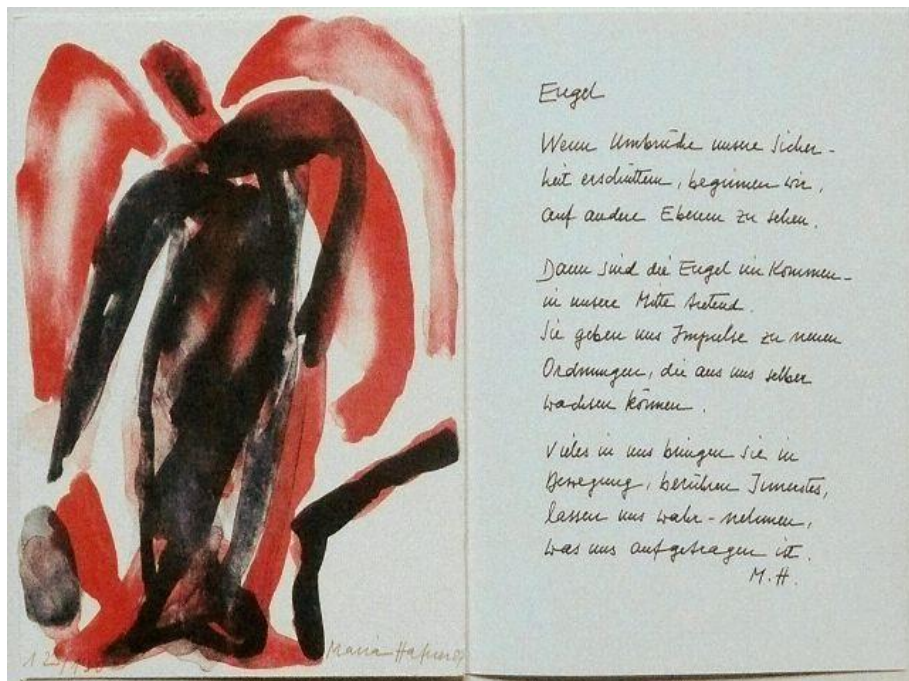 Engel
Wenn Umbrüche unsere Sicher-
heit erschüttern, beginnen wir,
auf andere Ebenen zu sehen.
Dann sind die Engel im Kommen-
in unsere Mitte tretend.
Sie geben uns Impulse zu neuen
Ordnungen, die aus uns selber
wachsen können.
Vieles in uns bringen sie in
Bewegung, berühren Innerstes,
lassen uns wahr-nehmen,
was uns aufgetragen ist.
M.H.
Maria Hafner